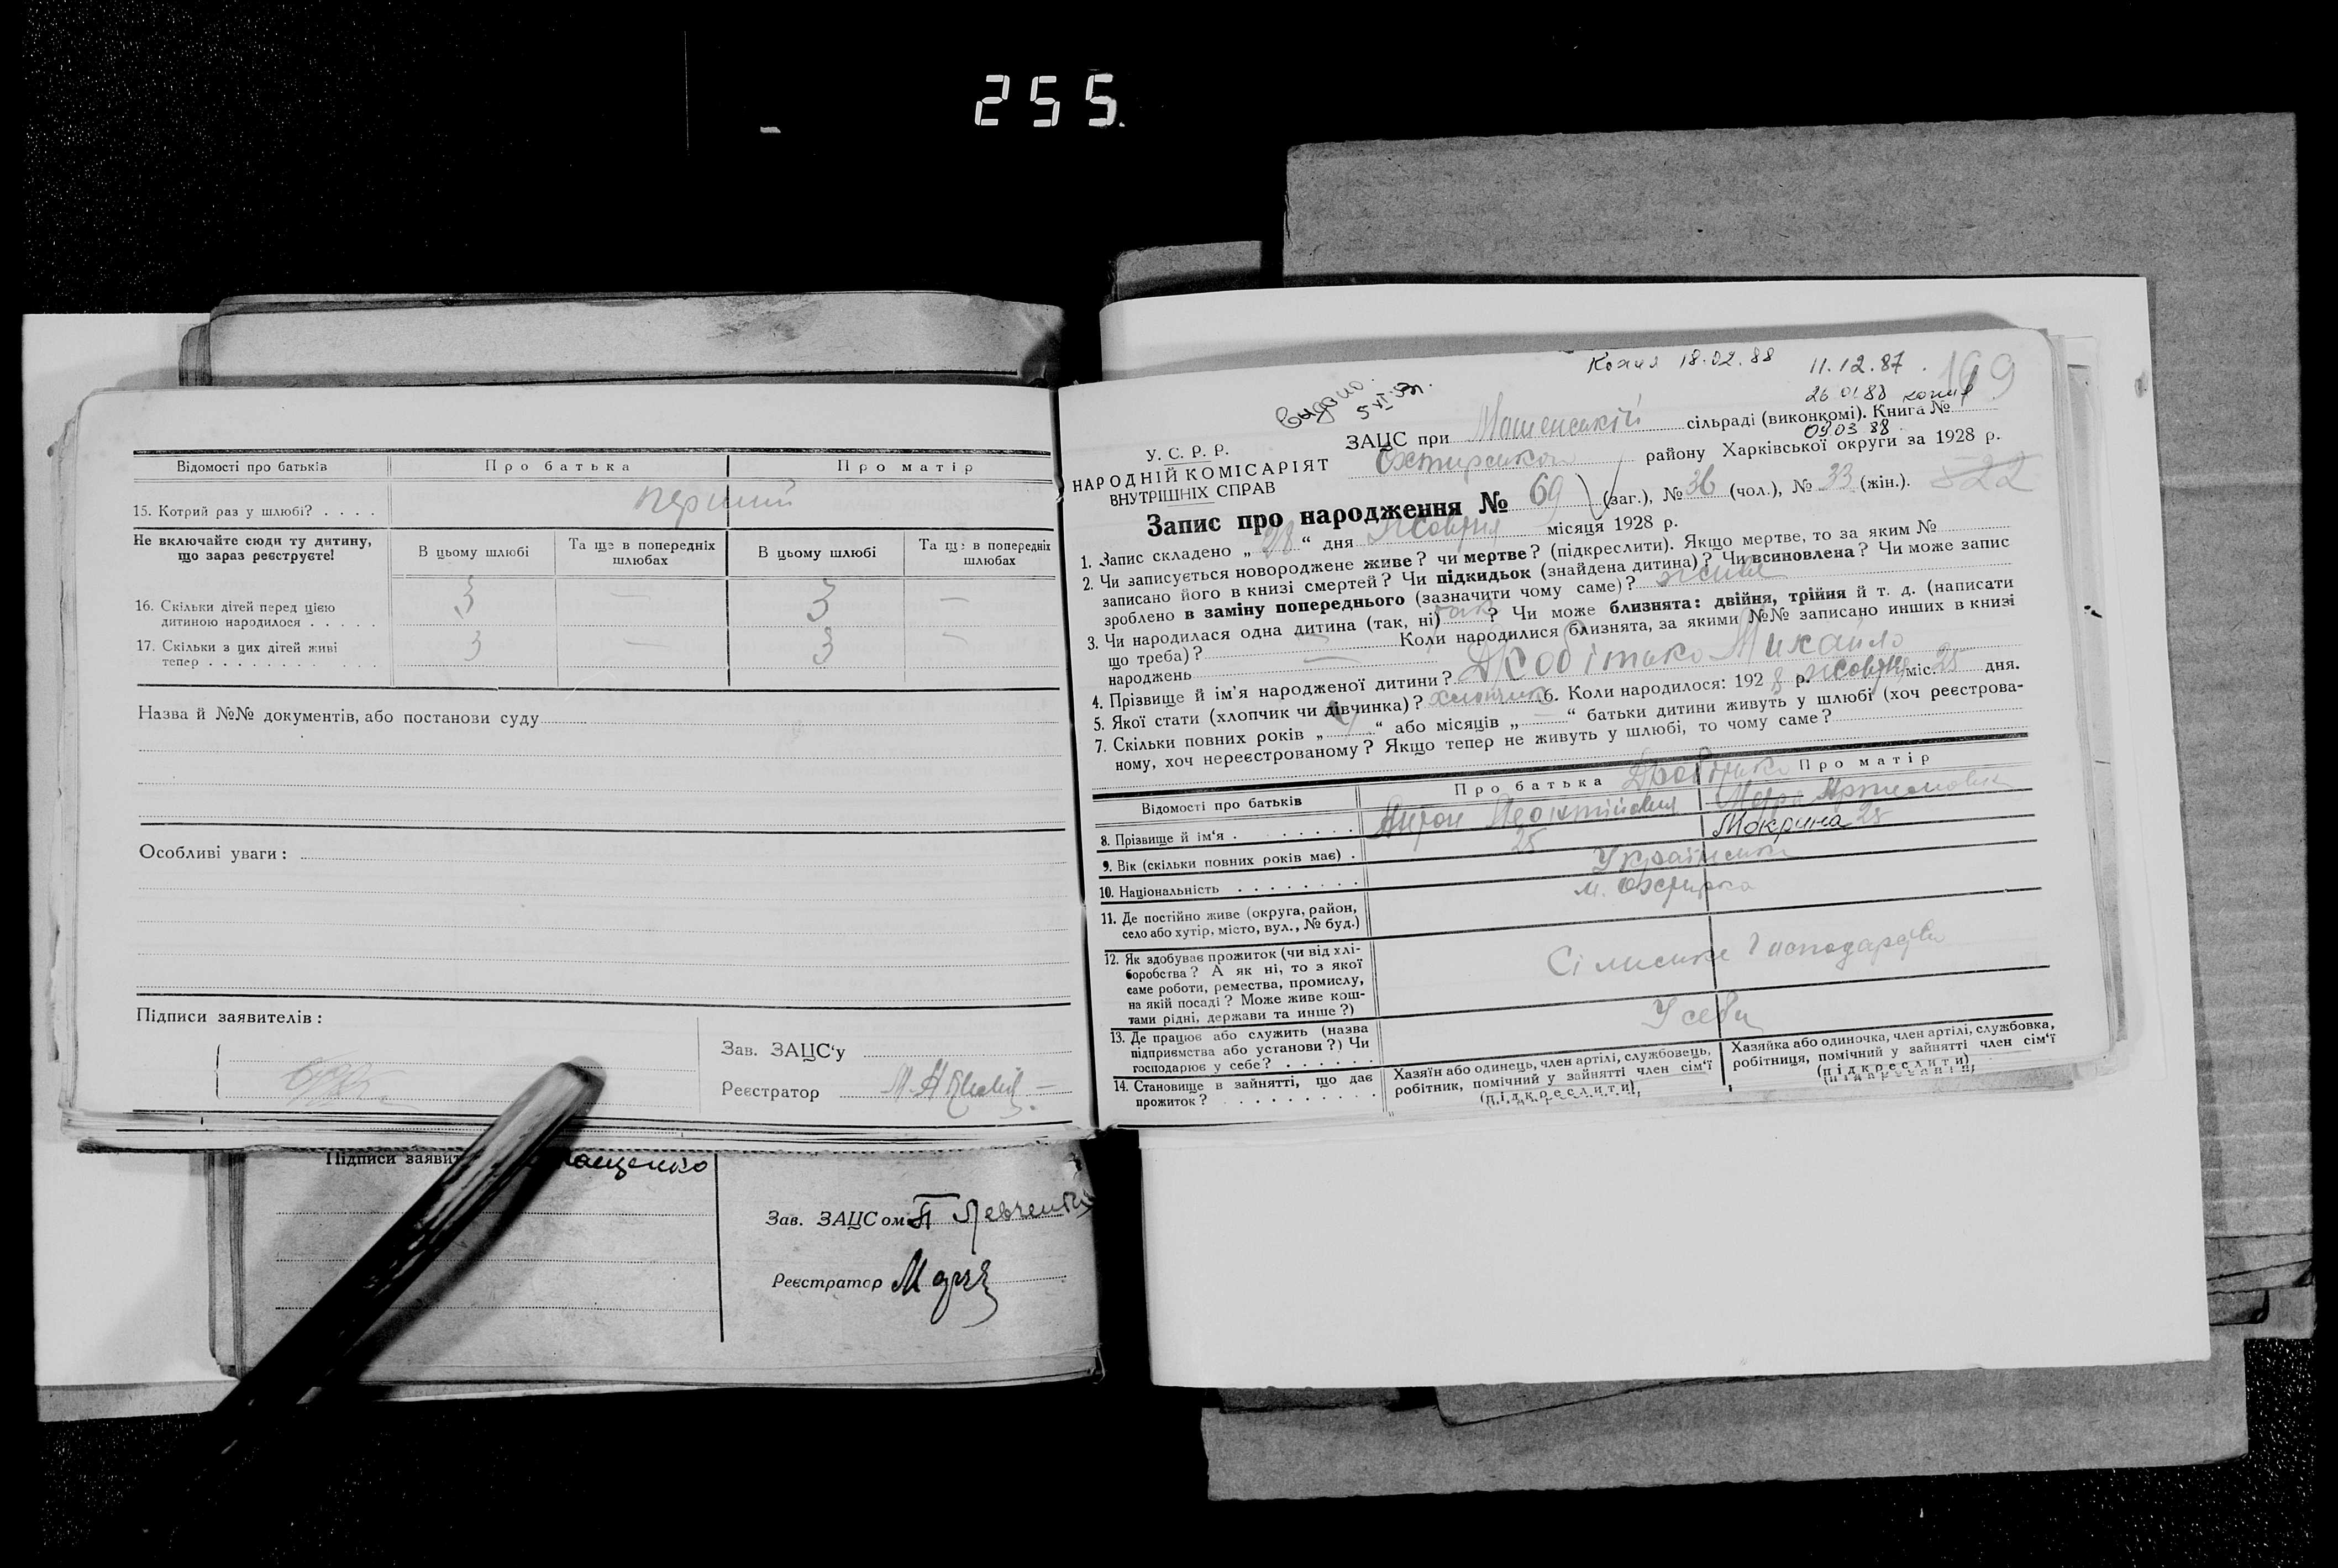 255.
Відомості про батьків Про батька Про матір
15. Котрий раз у шлюбі? . . . . перший
Не включайте сюди ту дитину, що зараз реєструєте!
В цьому шлюбі Та ще в попередніх шлюбах В цьому шлюбі Та ще в попередніх шлюбах
16. Скільки дітей перед цією
дитиною народилося . . . . . 3 — 3 —
17. Скільки з цих дітей живі
тепер . . . . . . . . . . . 3 — 3 —
Назва й №№ документів, або постанови суду
Особливі уваги:
Підписи заявителів:
Зав. ЗАЦС‘у
Реєстратор
Підписи заявит ащенко
Зав. ЗАЦСом П Левченко
Реєстратор
Копия 18.02.88 11.12.87. 169
Видано 26.01.88 копия
5 XI
У. С. Р. Р. ЗАЦС при Мошенській сільраді (виконкомі). Книга №
09 03 88
НАРОДНІЙ КОМІСАРІЯТ Охтирськом району Харківської округи за 1928 р.
ВНУТРІШНІХ СПРАВ
Запис про народження № 69 (заг.), № 36 (чол.), № 33 (жін.). 522
1. Запис складено „28“ дня Жовтня місяця 1928 р.
2. Чи записується новороджене живе? чи мертве? (підкреслити). Якщо мертве, то за яким №
записано його в книзі смертей? Чи підкидьок (знайдена дитина)? Чи всиновлена? Чи може запис
зроблено в заміну попереднього (зазначити чому саме)? живе
3. Чи народилася одна дитина (так, ні) так? Чи може близнята: двійня, трійня й т. д. (написати
що треба)? — Коли народилися близнята, за якими №№ записано инших в книзі
народжень —
4. Прізвище й ім’я народженої дитини? Дробітько Михайло
5. Якої стати (хлопчик чи дівчинка)? хлопчик 6. Коли народилось: 1928 р. жовтня міс. 25 дня.
7. Скільки повних років „ “ або місяців „—“ батьки дитини живуть у шлюбі (хоч реєстрова-
ному, хоч нереєстрованому? Якщо тепер не живуть у шлюбі, то чому саме?
Відомості про батьків Про батька Дробітько Про матір
8. Прізвище й ім‘я . . . . . . . . Антон Артемовна
Мокрина
9. Вік (скільки повних років має) . 25 28
10. Національність . . . . . . . . . Українська
11. Де постійно живе (округа, район,
село або хутір, місто, вул., № буд.) м. Охтирка
12. Як здобуває прожиток (чи від хлі-
боробства? А як ні, то з якої
саме роботи, ремества, промислу,
на якій посаді? Може живе кош-
тами рідні, держави та инше?) Сільське Господарство
13. Де працює або служить (назва
підприємства або установи?) Чи
господарює у себе? . . . . . У себе
14. Становище в зайнятті, що дає
прожиток? . . . . . . . . . .
Хазяїн або одинець, член артілі, службовець,
робітник, помічний у зайнятті член сім‘ї
(підкреслити)
Хазяйка або одиночка, член артілі, службовка,
робітниця, помічний у зайнятті член сім‘ї
(підкреслити)